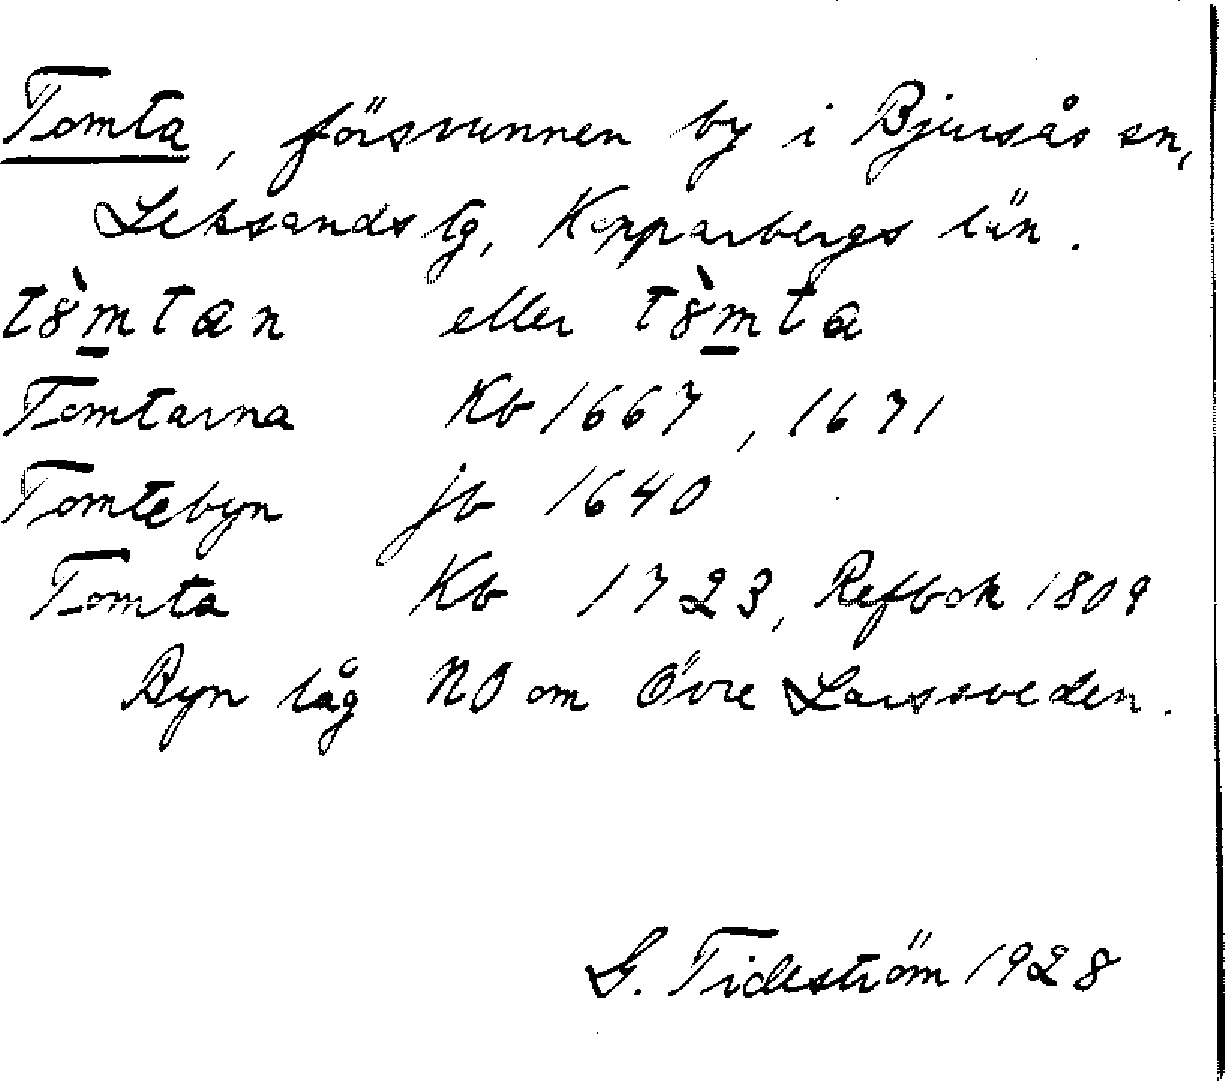 Tomta, försvunnen by i Bjursås sn,
Leksands tg, Kopparbergs län.
t8̀m̲tan eller t8̀m̲ta
Tomtarna Kb 1667, 1671
Tomtebyn jb 1640
Tomta Kb 1723, Refbok 1809
Byn låg NO om Övre Larssveden.
G. Tideström 1928